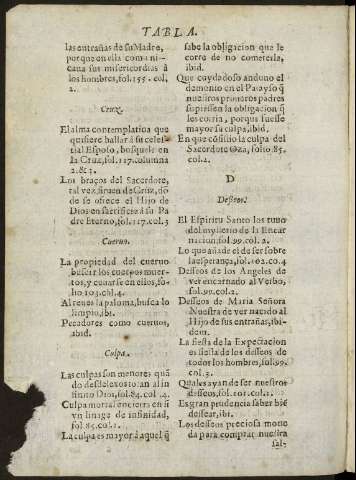 TABLA.
las entrañas de su Madre,
porque en ella comuni-
caua sus misericordias à
los hombres, fol. 155. col.
2.
Cruz.
El alma contemplatiua que
quisiere hallar à su celes-
tial Esposo, busquele en
la Cruz, fol. 117. columna
2. & 3.
Los braços del Sacerdote,
tal vez siruen de Cruz, dó
de se ofrece el Hijo de
Dios en sacrificio à su Pa
dre Eterno, fol. 117. col. 3
Cueruo.
La propiedad del cueruo
buscar los cuerpos muer-
tos, y ceuarse en ellos, fo-
lio 103. col. 4.
Al reues la paloma, busca lo
limpio, ibi.
Pecadores como cueruos,
ibid.
Culpa.
Las culpas son menores quã
do descalexos tocan al in
finito Dios, fol. 84. col. 4.
Culpa mortal encierra en si
vn linage de infinidad,
fol. 85. col. 1.
La culpa es mayor à aquel q̃
sabe la obligacion que le
corre de no cometerla,
ibid.
Que cuydadoso anduuo el
demonio en el Parayso q̃
nuestros primeros padres
supiessen la obligacion q̃
les corria, porque fuesse
mayor su culpa, ibid.
En que cõsistio la culpa del
Sacerdote Oza, folio 85.
col. 2.
D
Desseos.
El Espiritu Santo los tuuo
del mysterio de la Encar
nacion, fol. 99. col. 2.
Lo que añade el desseo sobre
la esperança, fol. 102. co. 4
Desseos de los Angeles de
ver encarnado al Verbo,
fol. 99. col. 2.
Desseos de Maria Señora
Nuestra de ver nacido al
Hijo de sus entrañas, ibi-
dem.
La fiesta de la Expectacion
es fiesta de los desseos de
todos los hombres, fol. 99.
col. 3.
Quales ayan de ser nuestros
desseos, fol. 101. col. 1.
Es gran prudencia saber bié
dessear, ibi.
Los desseos preciosa mone
da para comprar nuestra
sal-